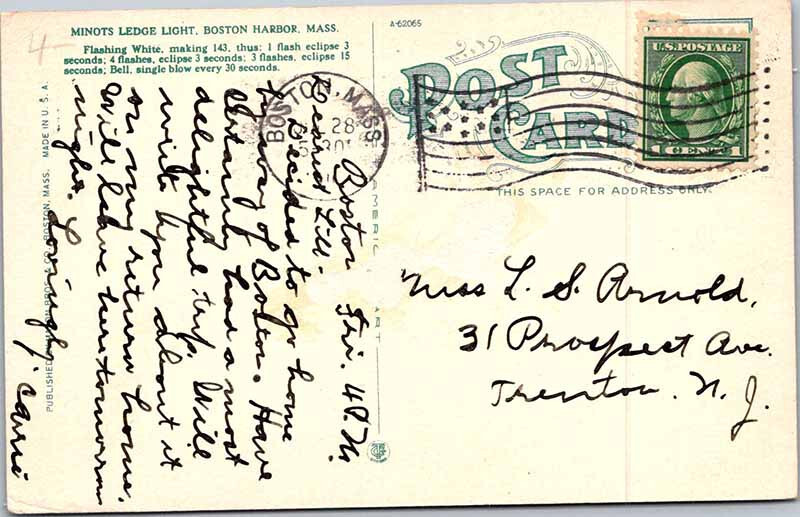 4-
MINOTS LEDGE LIGHT, BOSTON HARBOR, MASS.
Flashing White, making 143, thus: 1 flash eclipse 3
seconds; 4 flashes, eclipse 3 seconds; 3 flashes, eclipse 15
seconds; Bell, single blow every 30 seconds.
A-62065
POST
CARD
THIS SPACE FOR ADDRESS ONLY.
U.S. POSTAGE
1 CENT 1
BOSTON, MASS.
28
30
Boston Fri. 4 P.M.
Dearest Lill:-
Decided to go home
by way of Boston. Have
certainly had a most
delightful trip. Will
write you about it
on my return home.
Will leave here tomorrow
night. Lovingly, Carrie
Miss L. S. Arnold,
31 Prospect Ave.
Trenton. N. J.
PUBLISHED BROS. & CO., BOSTON, MASS. MADE IN U. S. A.
AMERIC ART